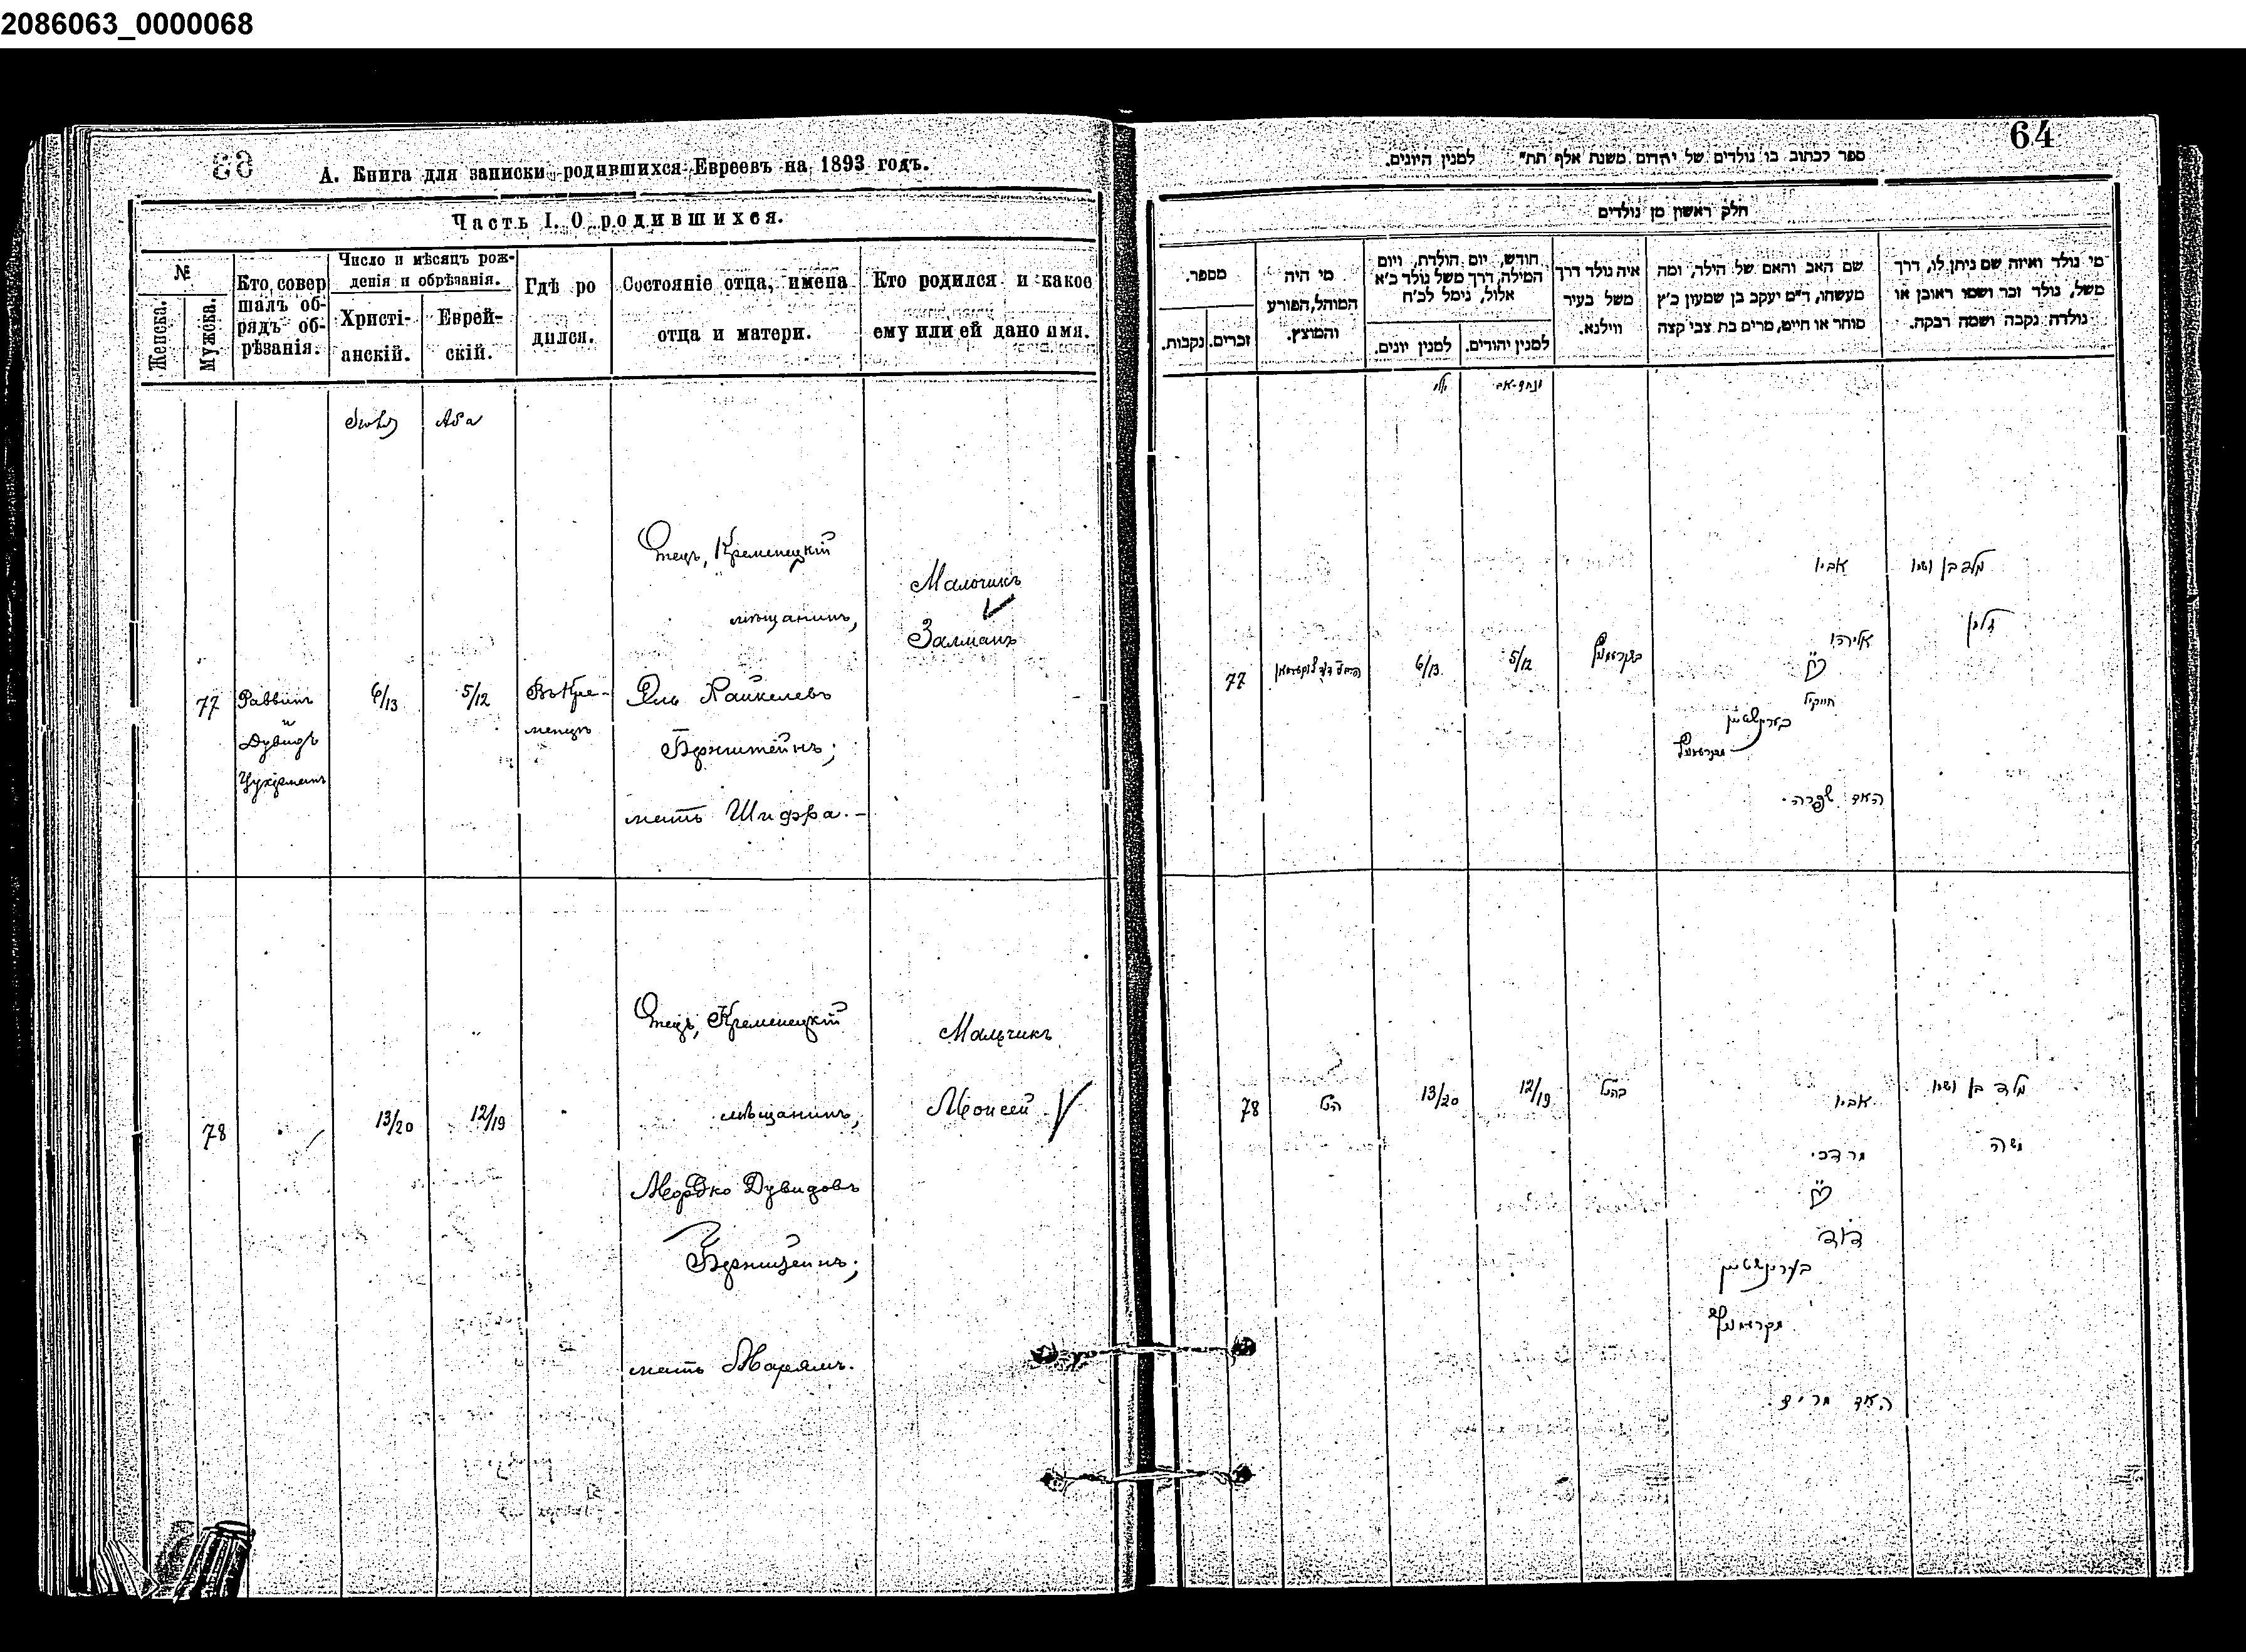 2086063_0000068
А. Книга для записки родившихся Евреевъ на 1893 годъ.
Часть I. О родившихся.
№
Женска.
Мужска.
Кто совер
шалъ об-
рядъ об-
рѣзанія.
Число и мѣсяцъ рож-
денія и обрѣзанія.
Христі-
анскій.
Еврей-
скій.
Гдѣ ро
дился.
Состояніе отца, имена
отца и матери.
Кто родился и какое
ему или ей дано имя.
Ава
77
Раввинъ
и
Дувидъ
Цукерманъ
6/13
5/12
Въ Кре-
менцѣ
Отецъ, Кременецкій
мѣщанинъ,
Эль Хайкелевъ
Бернштейнъ;
мать Шифра.-
Мальчикъ
Залманъ
78
13/20
12/19
Отецъ, Кременецкій
мѣщанинъ,
Мордко Дувидовъ
Бернштейнъ;
мать Марямъ.
Мальчикъ
Моисей
64
ספר לכתוב בו נולדים של יהדום משנת אלף תת״ למנין היונים.
חלק ראשון מן נולדים
מי נולד ואיזה שם ניתן לו, דרך
משל, נולד זכר ושמו ראובן או
נולדה נקבה ושמה רבקה.
שם האב והאם של הילד, ומה
מעשהו, ד״מ יעקב בן שמעון כ״ץ
סוחר או חייט, מרים בת צבי קצה
איה נולד דרך
משל בעיר
ווילנא.
חודש, יום הולדת, ויום
המילה, דרך משל נולד כ״א
אלול, נימל לכ״ח
למנין יהודים.
למנין יונים.
מי היה
המוהל, הפורע
והמוצץ.
מספר.
זכרים.
נקבות.
יולי
נולד בן ושמו
זלמן
אביו
אליהו
חייקיל
בערינשטיין
האם שפרה.
5/12
6/13
77
נולד בן ושמו
משה
אביו
מרדכי
דוד
בערינשטיין
מקרעמניץ
האם מרים.
כהנ״ל
12/19
13/20
הנ״ל
78